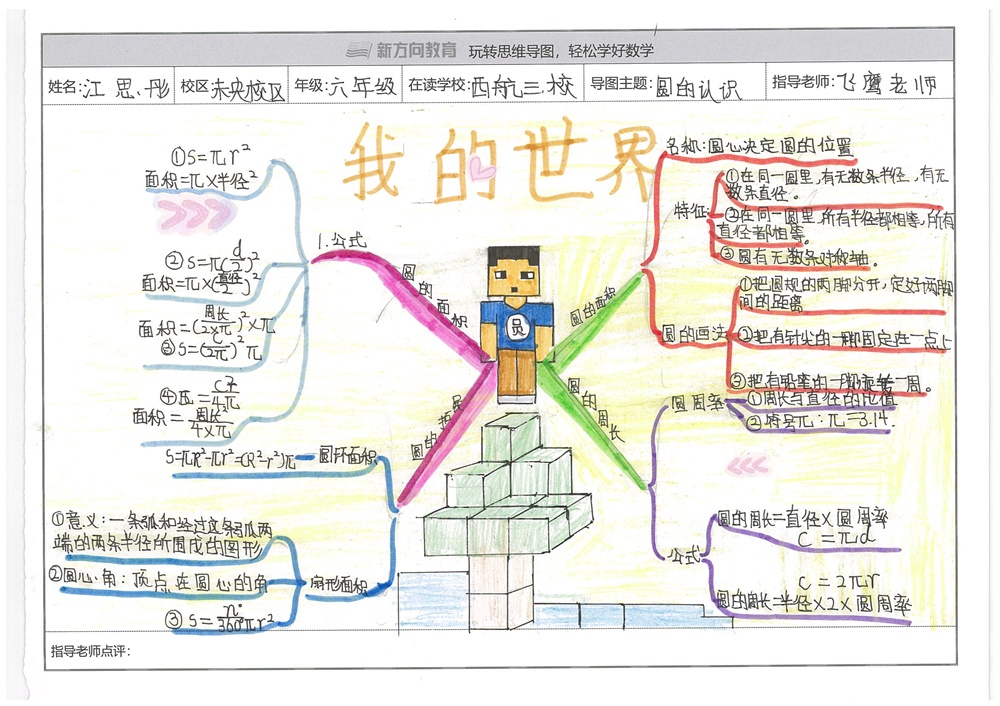 新方向教育 玩转思维导图，轻松学好数学
姓名：江思彤 校区 未央校区 年级：六年级 在读学校：西航三校 导图主题：圆的认识 指导老师：飞鹰老师
我的世界
①S=πr²
面积=π×半径²
②S=π(d/2)²
面积=π×(直径/2)²
面积=(周长/2×π)²×π
③S=(C/2π)²π
④
面积=周长²/4×π
1.公式
圆的面积
S=πR²-πr²=(R²-r²)π
圆环面积
①意义：一条弧和经过这条弧两
端的两条半径所围成的图形
②圆心角：顶点在圆心的角
③S=n°/360°πr²
扇形面积
圆的
员
圆的面积
圆的周长
名称：圆心决定圆的位置
特征：
①在同一圆里，有无数条半径，有无
数条直径。
②在同一圆里，所有半径都相等，所有
直径都相等。
③圆有无数条对称轴。
圆的画法
①把圆规的两脚分开，定好两脚
间的距离
②把有针尖的一脚固定在一点上
③把有铅笔的一脚旋转一周。
圆周率
①周长与直径的比值
②符号π：π=3.14.
公式
圆的周长=直径×圆周率
C=πd
C=2πr
圆的周长=半径×2×圆周率
指导老师点评：